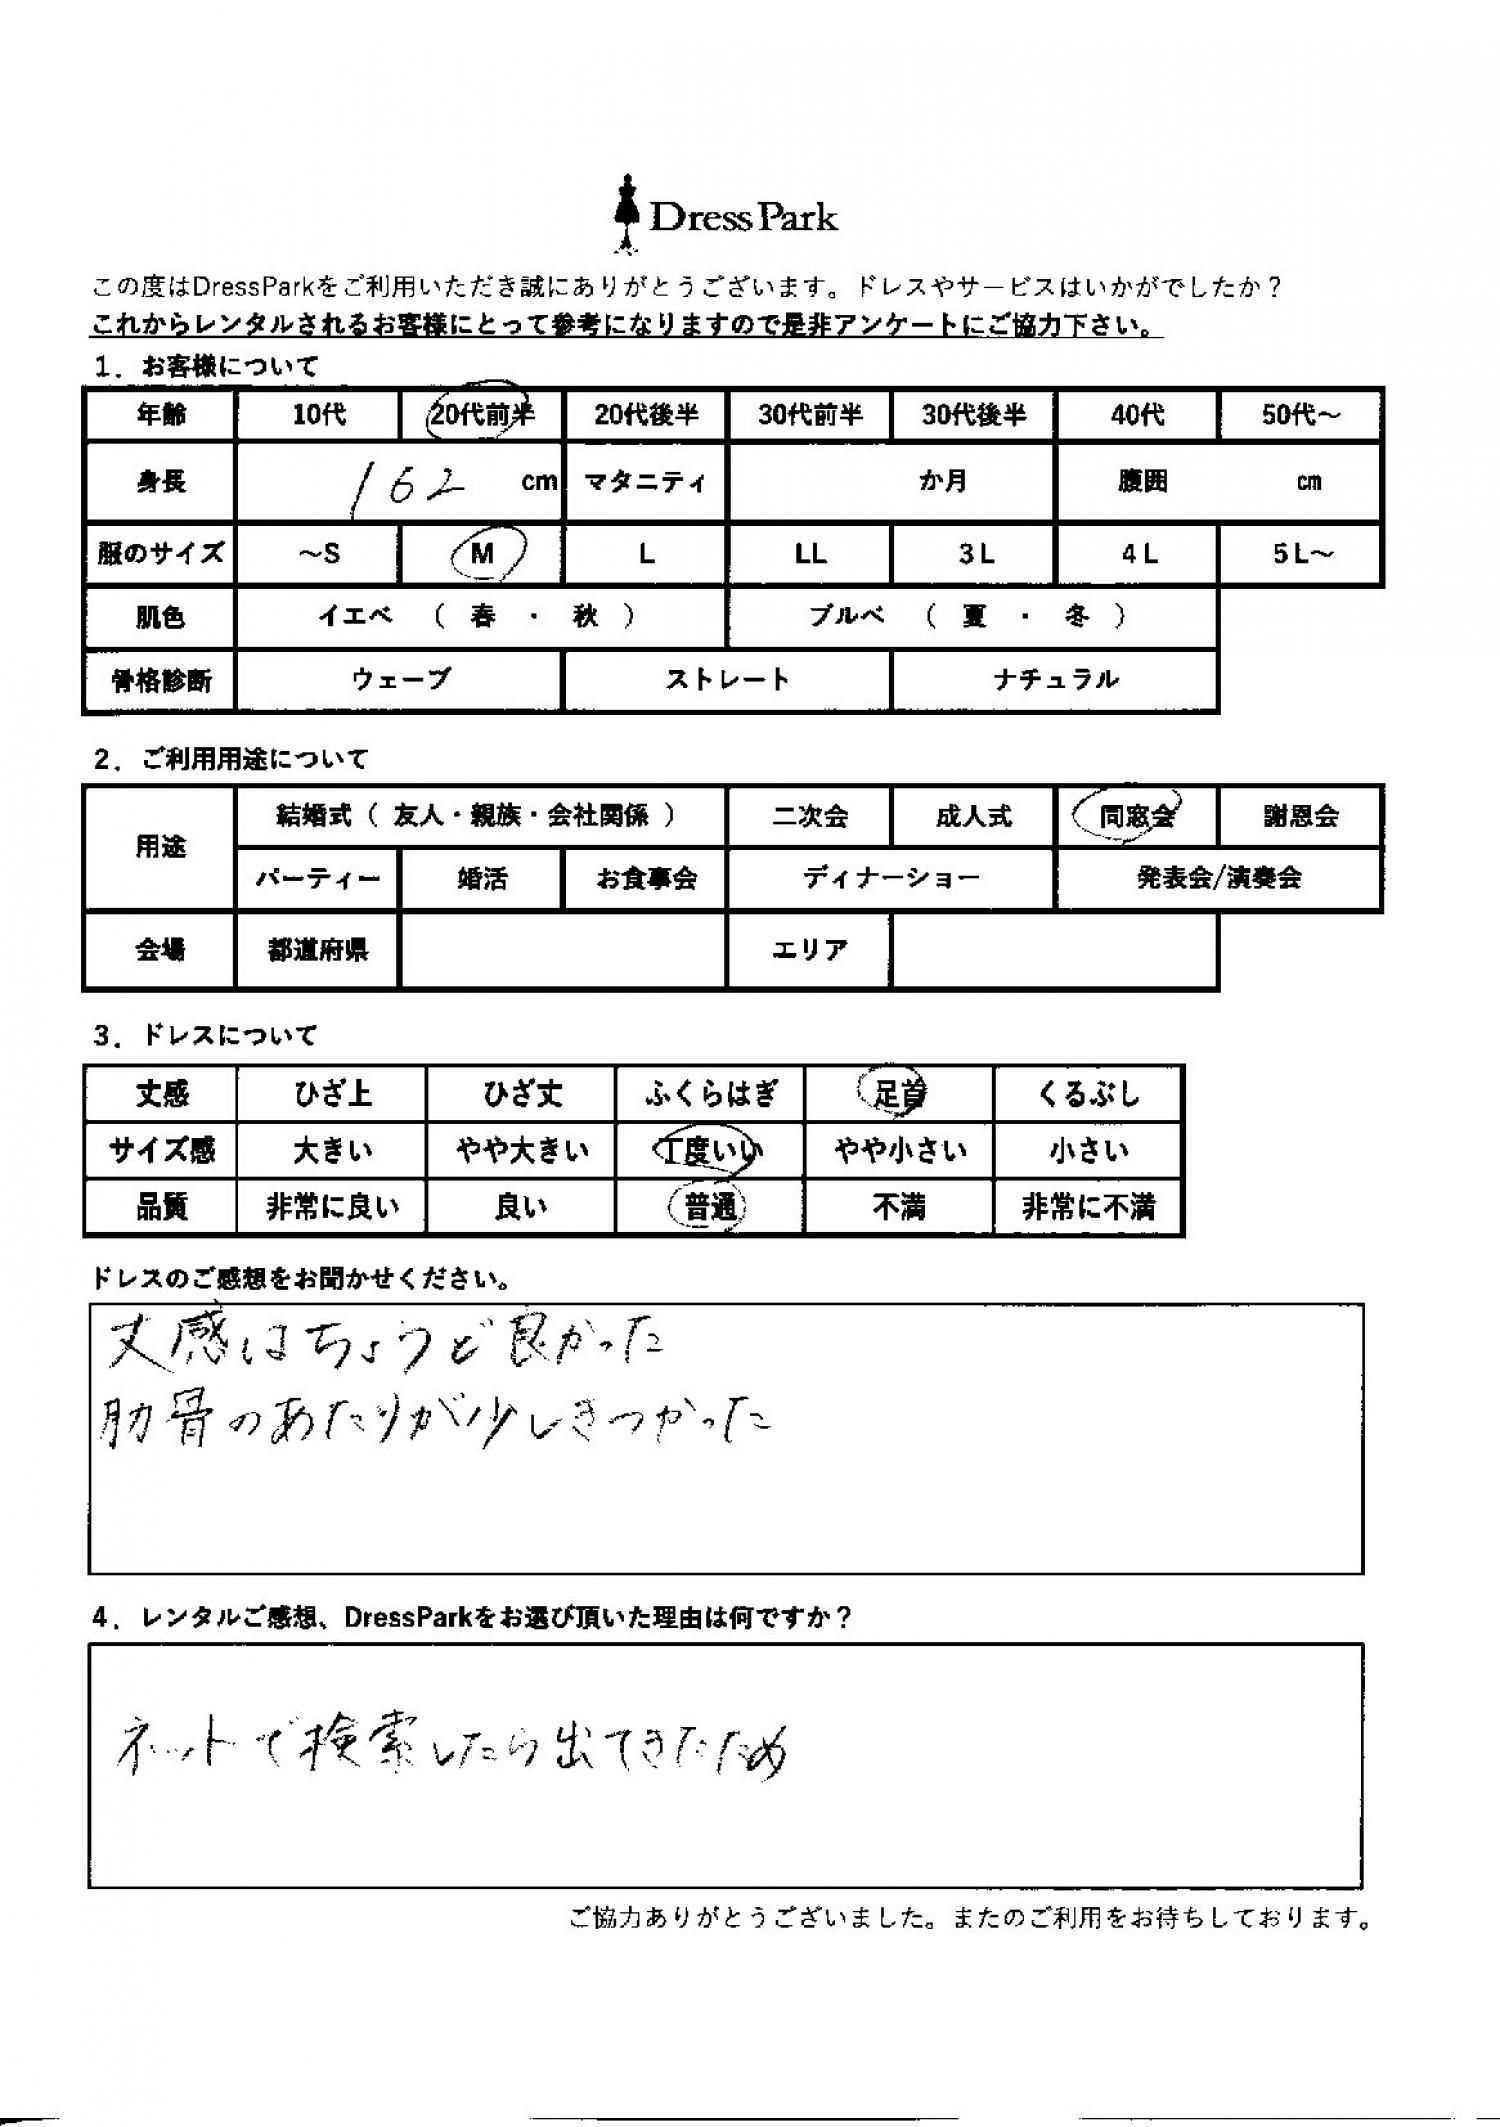 Dress Park
この度はDressParkをご利用いただき誠にありがとうございます。ドレスやサービスはいかがでしたか？
これからレンタルされるお客様にとって参考になりますので是非アンケートにご協力下さい。
1．お客様について
年齢 10代 20代前半 20代後半 30代前半 30代後半 40代 50代～
身長 162 cm マタニティ か月 腹囲 cm
服のサイズ ～S M L LL 3L 4L 5L～
肌色 イエベ （ 春 ・ 秋 ） ブルベ （ 夏 ・ 冬 ）
骨格診断 ウェーブ ストレート ナチュラル
2．ご利用用途について
用途 結婚式（ 友人・親族・会社関係 ） 二次会 成人式 同窓会 謝恩会
パーティー 婚活 お食事会 ディナーショー 発表会/演奏会
会場 都道府県 エリア
3．ドレスについて
丈感 ひざ上 ひざ丈 ふくらはぎ 足首 くるぶし
サイズ感 大きい やや大きい 丁度いい やや小さい 小さい
品質 非常に良い 良い 普通 不満 非常に不満
ドレスのご感想をお聞かせください。
丈感はちょうど良かった
肋骨のあたりが少しきつかった
4．レンタルご感想、DressParkをお選び頂いた理由は何ですか？
ネットで検索したら出てきたため
ご協力ありがとうございました。またのご利用をお待ちしております。